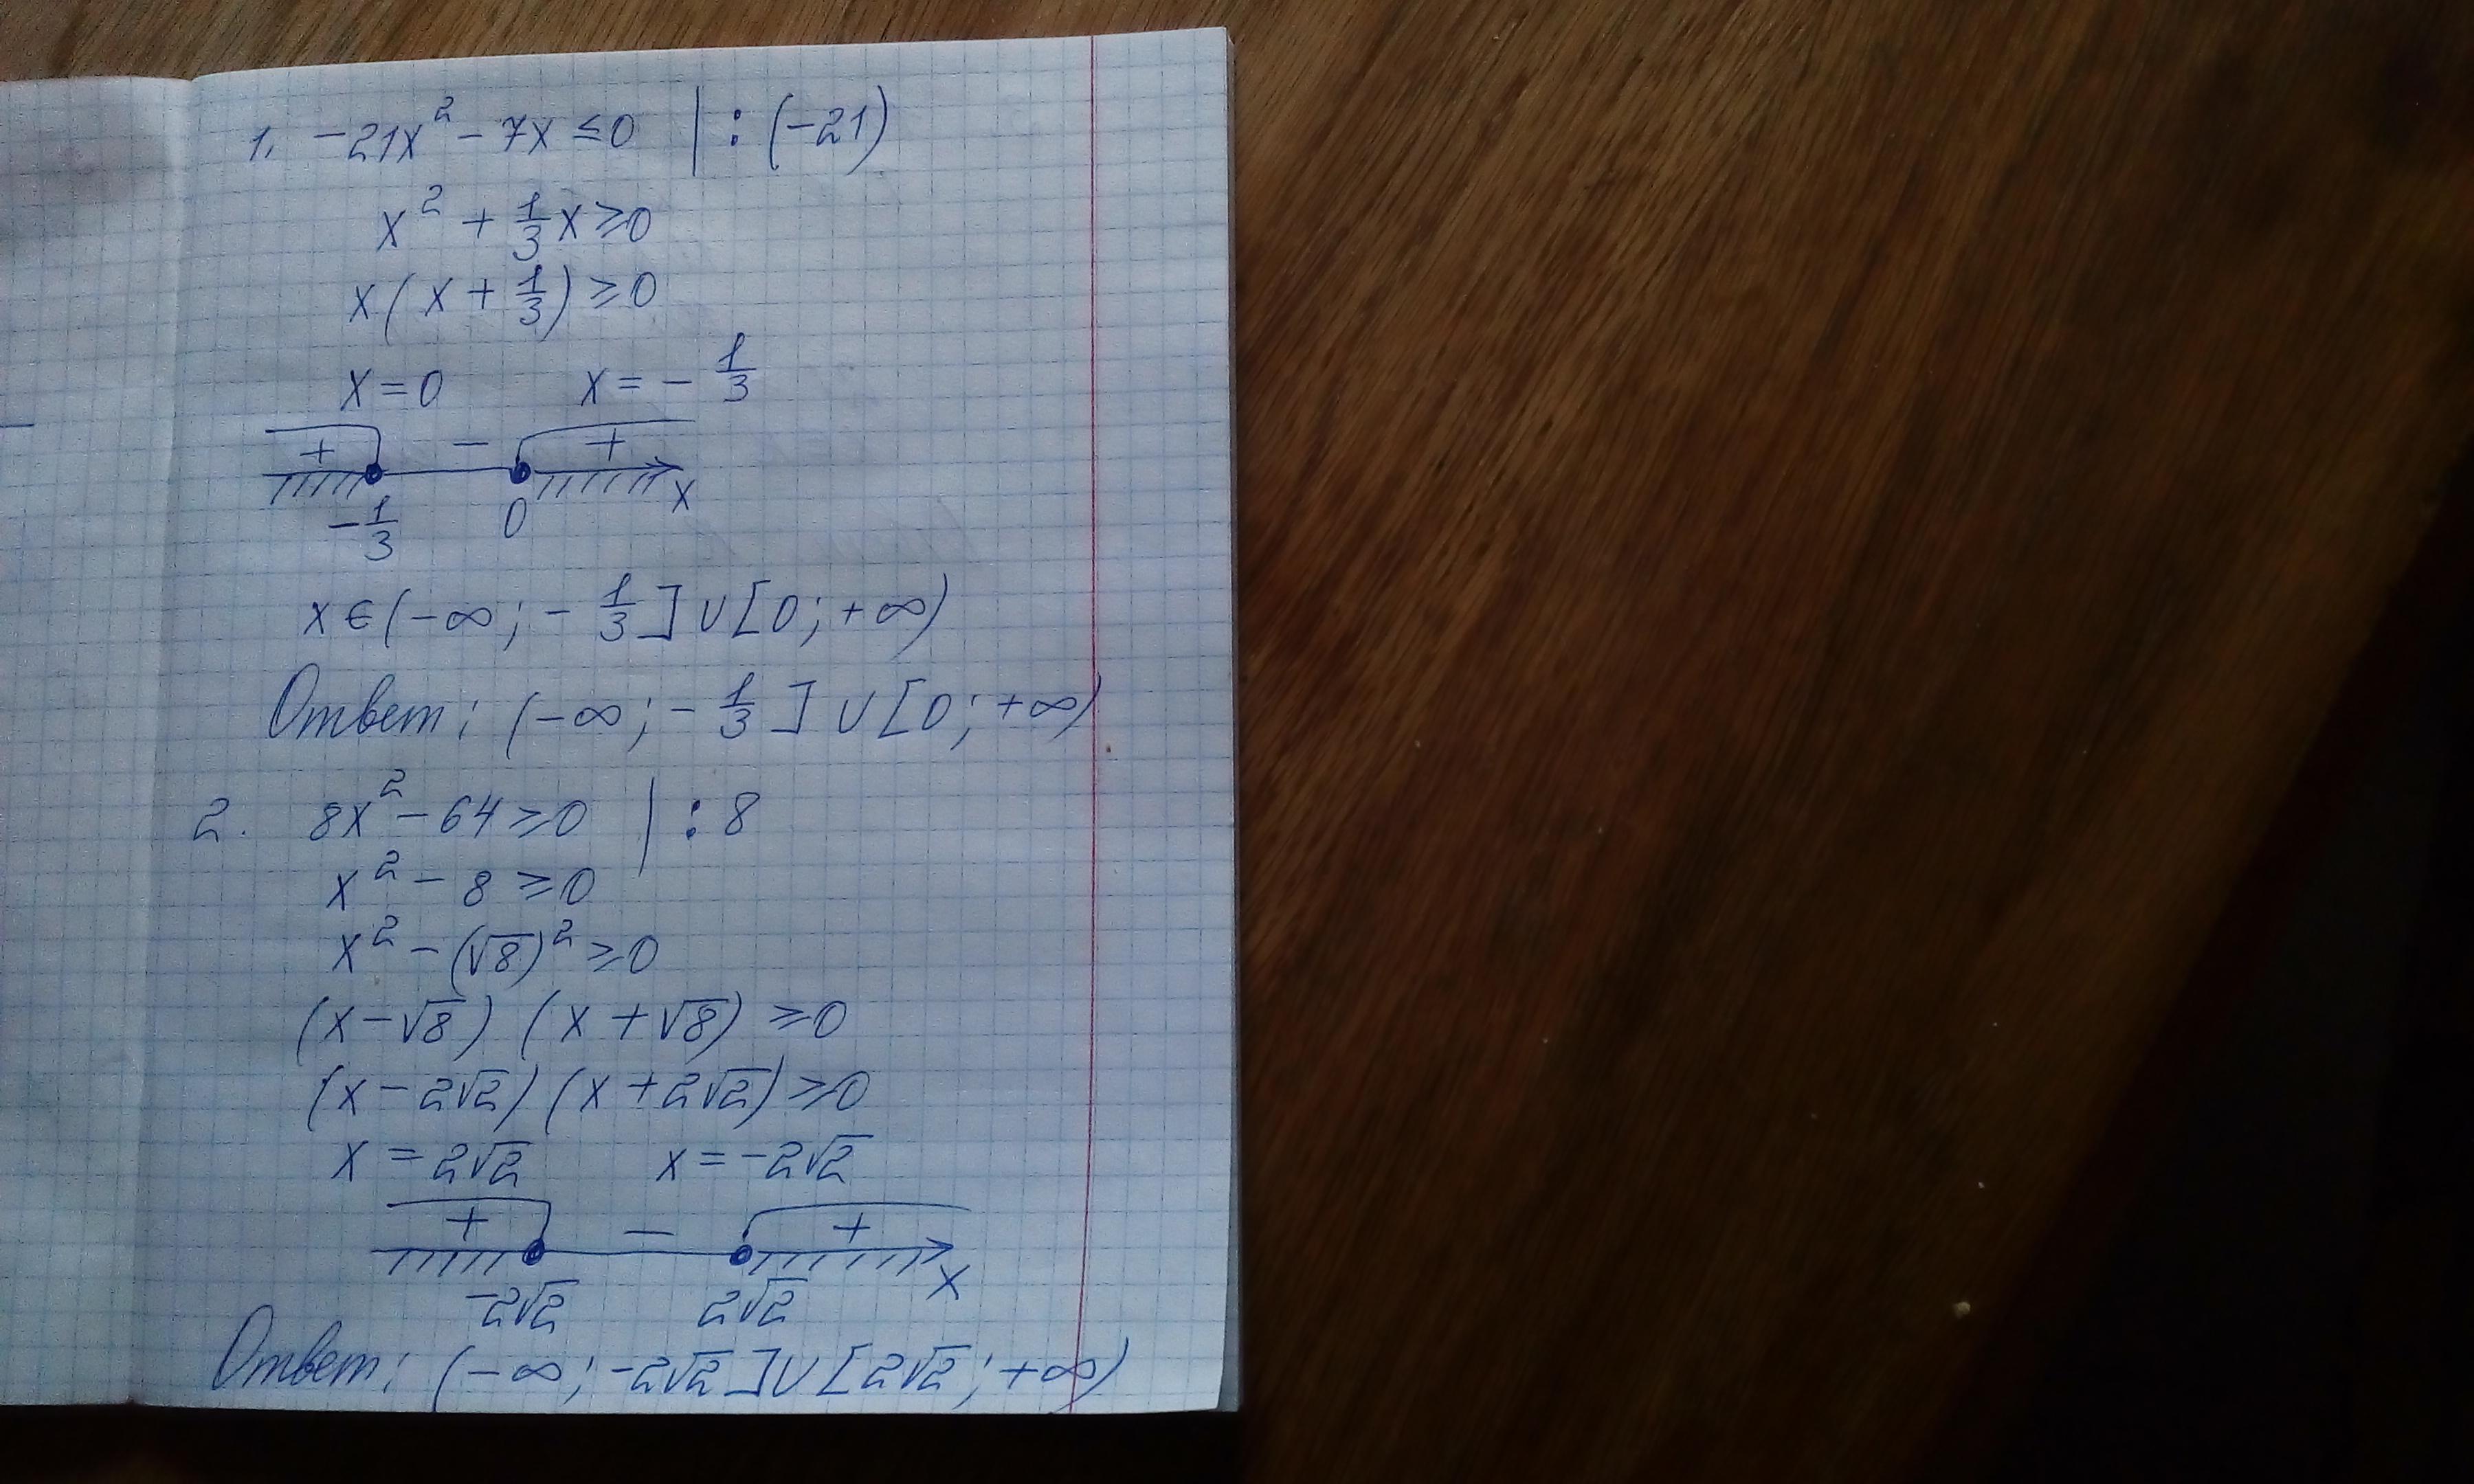 1. -21x² - 7x ≤ 0 | : (-21)
x² + 1/3 x ≥ 0
x(x + 1/3) ≥ 0
x = 0   x = - 1/3
+ - +
-1/3 0 x
x ∈ (-∞; - 1/3] ∪ [0; +∞)
Ответ: (-∞; - 1/3] ∪ [0; +∞)
2. 8x² - 64 ≥ 0 | : 8
x² - 8 ≥ 0
x² - (√8)² ≥ 0
(x - √8) (x + √8) ≥ 0
(x - 2√2) (x + 2√2) ≥ 0
x = 2√2   x = -2√2
+ - +
-2√2 2√2 x
Ответ: (-∞; -2√2] ∪ [2√2; +∞)